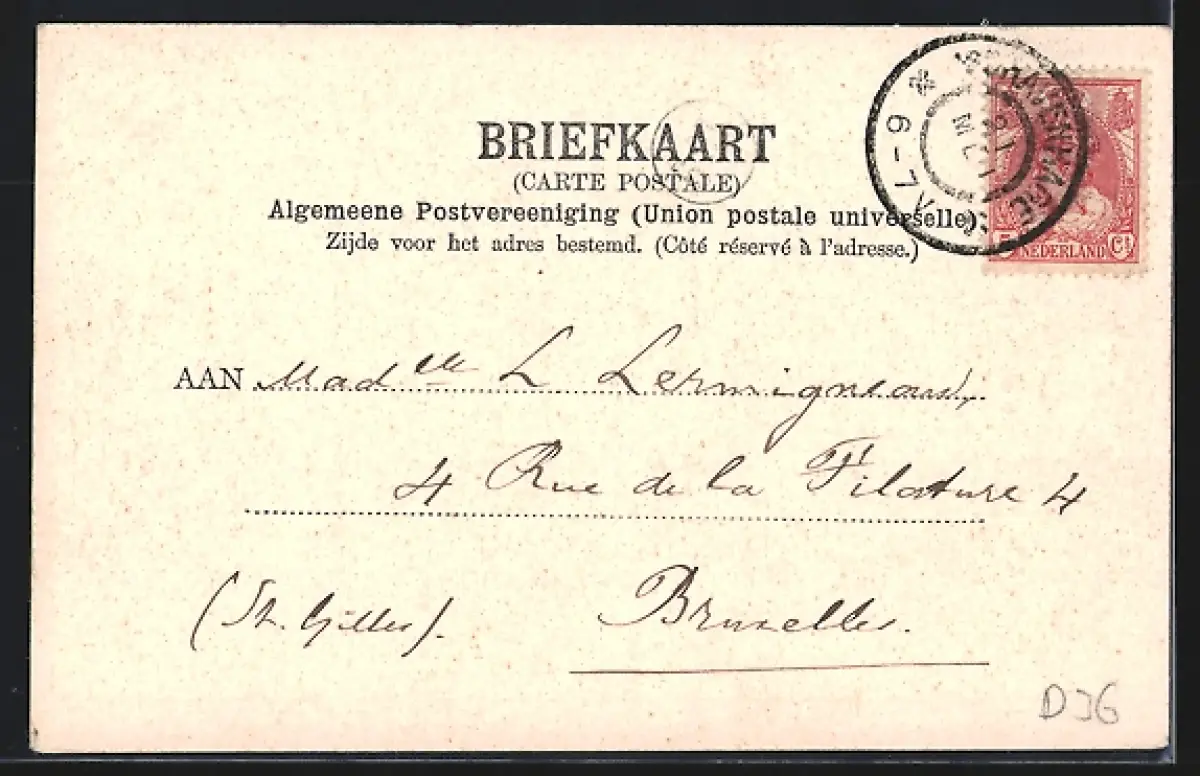 BRIEFKAART
(CARTE POSTALE)
Algemeene Postvereeniging (Union postale universelle)
Zijde voor het adres bestemd. (Côté réservé à l'adresse.)
'S GRAVENHAGE
7-9 V
5 NEDERLAND Ct
AAN Madelle L Lermigneaux,
4 Rue de la Filature 4
(St. Gilles). Bruxelles.
DJG